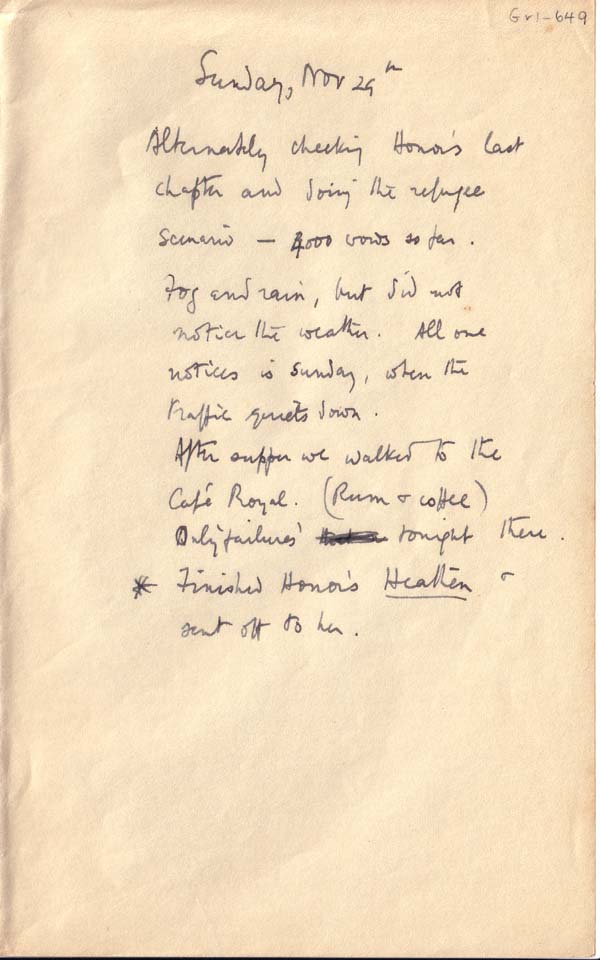 Gr1-649
Sunday, Nov 29th
Alternately checking Honor's last
chapter and doing the refugee
scenario — 4000 words so far.
Fog and rain, but did not
notice the weather. All one
notices is Sunday, when the
traffic quiets down.
After supper we walked to the
Café Royal. (Rum & coffee)
Only 'failures' tonight there.
* Finished Honor's Heathen &
sent off to her.